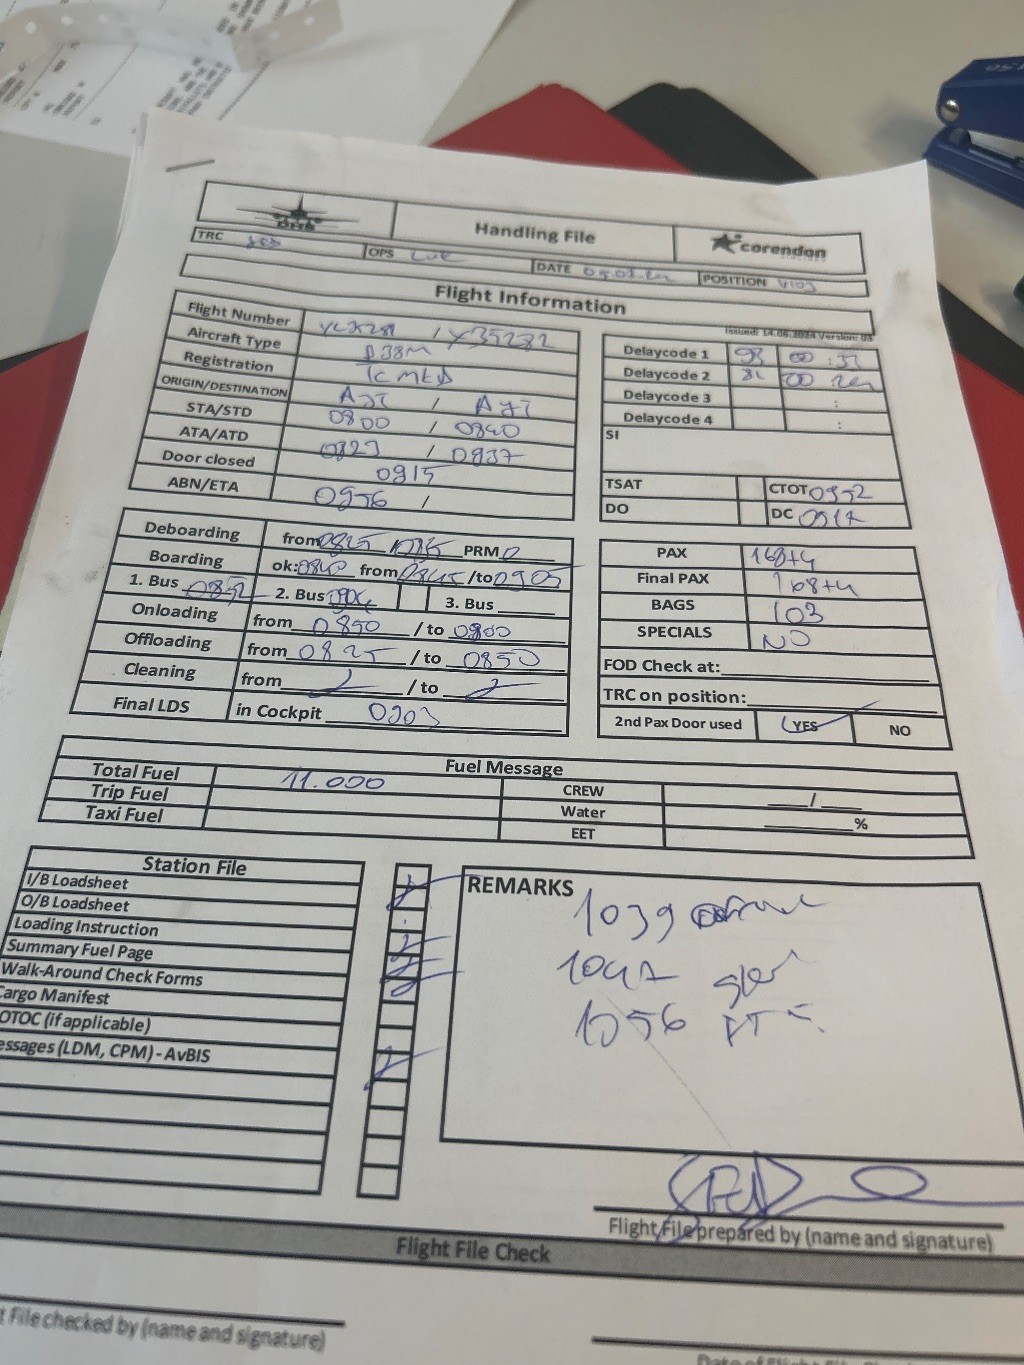 Handling File
corendon
TRC
OPS
DATE
POSITION
Flight Information
Issued: 14.06.2024 Version: 03
Flight Number / X35282
Aircraft Type B38M
Registration
ORIGIN/DESTINATION AYT / AYT
STA/STD 0800 / 0840
ATA/ATD 0823 / 0937
Door closed 0915
ABN/ETA /
Delaycode 1 93 00 :
Delaycode 2 00
Delaycode 3 :
Delaycode 4 :
SI
TSAT CTOT
DO DC
Deboarding from 0825 PRM 0
Boarding ok: 0840 from 0845 /to 0905
1. Bus 2. Bus 3. Bus
Onloading from 0850 / to 0900
Offloading from 0825 / to 0850
Cleaning from / to
Final LDS in Cockpit 0903
PAX 168+4
Final PAX 168+4
BAGS 103
SPECIALS NO
FOD Check at:
TRC on position:
2nd Pax Door used YES NO
Fuel Message
Total Fuel 11.000 CREW /
Trip Fuel Water %
Taxi Fuel EET
Station File
I/B Loadsheet
O/B Loadsheet
Loading Instruction
Summary Fuel Page
Walk-Around Check Forms
Cargo Manifest
OTOC (if applicable)
essages (LDM, CPM) - AvBIS
REMARKS
1039
1047
1056
Flight File prepared by (name and signature)
Flight File Check
t File checked by (name and signature)